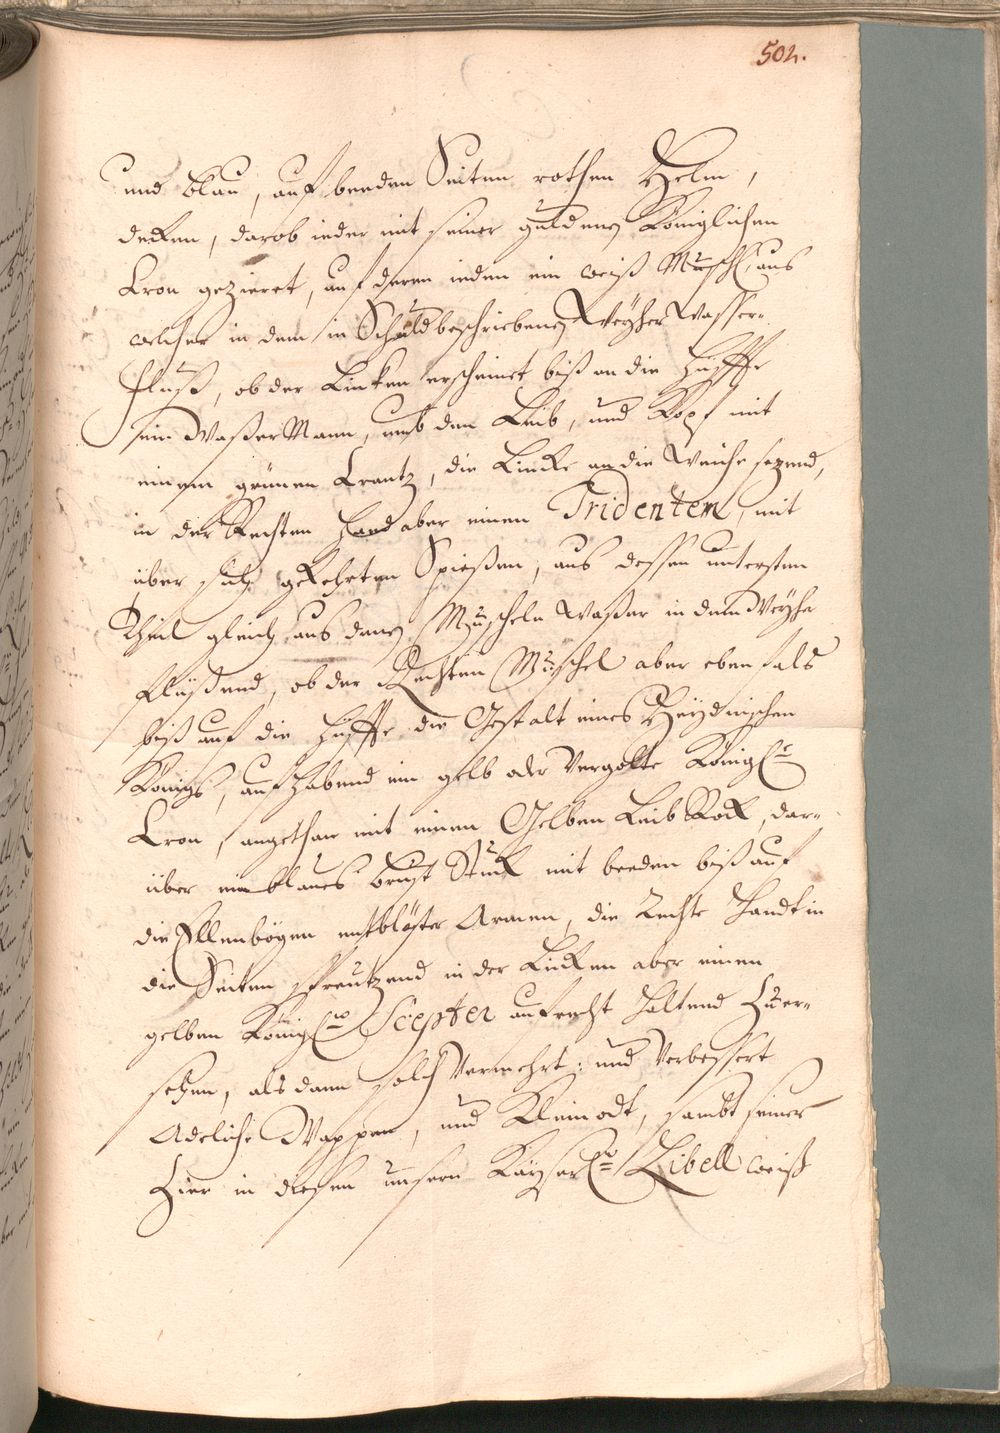 502.
und blau, auf beeden Seiten rothen Helm,
decken, darob ieder mit seiner guldenen Königlichen
Cron gezieret, auf deren ieden ein weiß Muschl, aus
welcher in dem in Schild beschriebenen Weyher Wasser
fluß, ob der Lincken erscheinet biß an die Hüffte
ein Waßer Mann, umb den Leib, und Kopf mit
einem grünen Crantz, die Lincke an die Weiche sezend,
in der Rechten Hand aber einen Tridentem, mit
über sich gekehrten Spießen, aus dessen untersten
Theil gleich aus denen Muscheln Waßer in dem Weyhe
flüßend, ob der Rechten Muschel aber eben als
biß auf die Hüffte die Gestalt eines Heydnischen
Königs, aufhabend ein gelb oder vergolte Königl.e
Cron, angethan mit einem Gelben Leib Rock, dar-
über ein blaues Brust Stuck mit beeden biß auf
die Ellenbögen entblößter Armen, die Rechte Handt in
die Seiten spreutzend in der Lincken aber einen
gelben Königl.n Scepter aufrecht haltend Zuer-
sehen, als dann solch vermehrt: und verbessert
Adeliche Wappen, und Kleinodt, sambt seiner
Zier in diesen unsern Kayserl.n Libell weiß